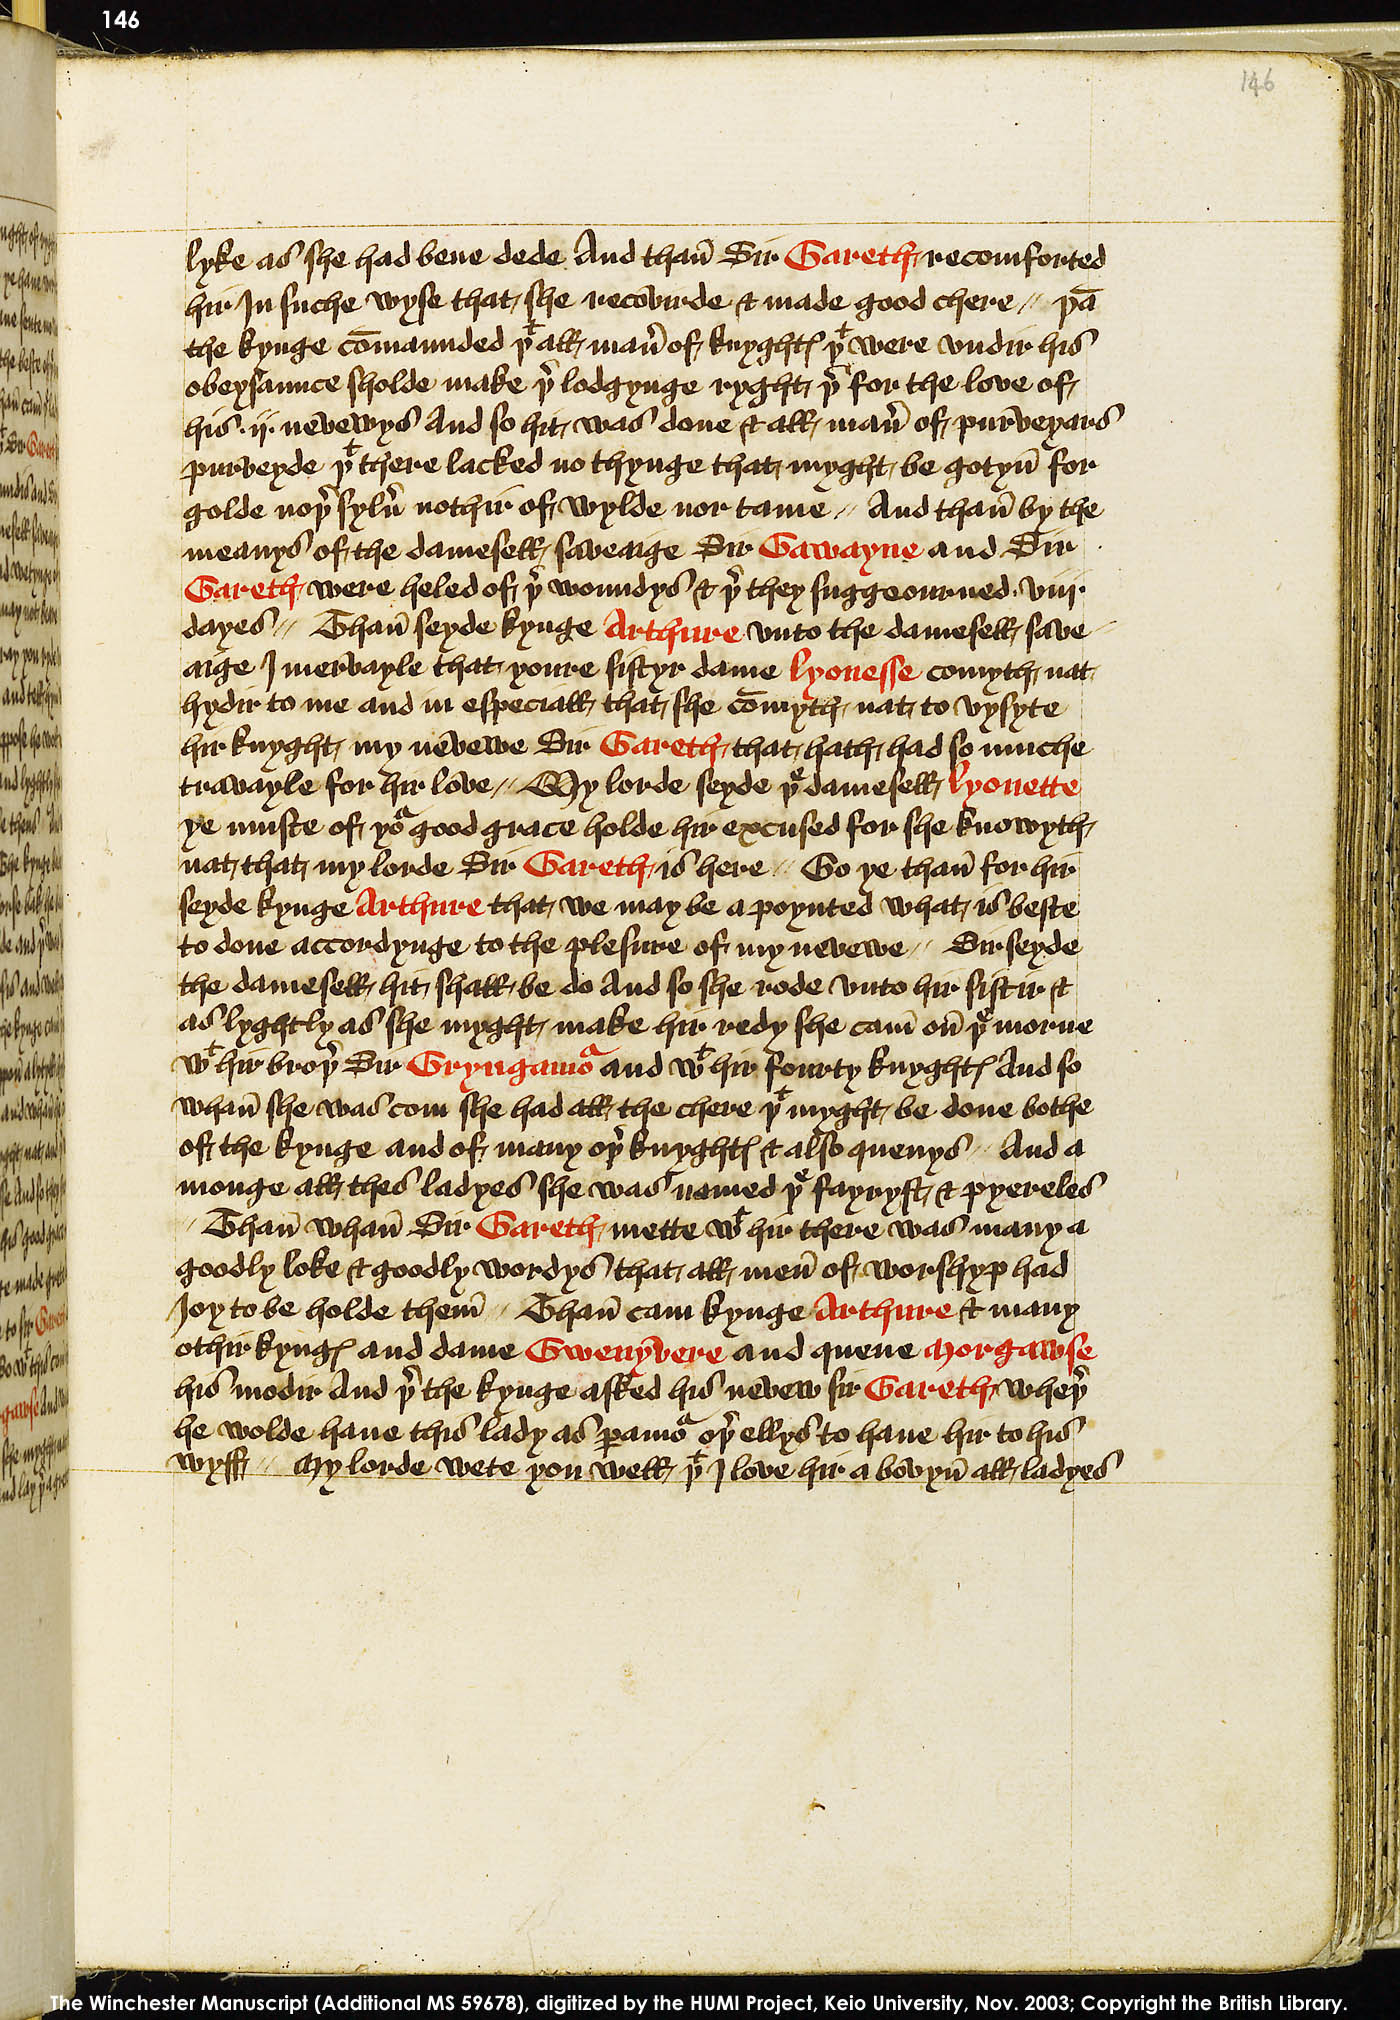 146
146
lyke as she had bene dede And than̄ Sir Gareth recomforted
hir In suche wyse that she recovirde & made good chere // þā
the kynge cōmaunded þᵗ all man̄ of knyghtꝭ þᵗ were vndir his
obeysaunce sholde make þ̄ lodgynge ryght þ̄ for the love of
his .ij. nevewys And so hit was done & all man̄ of purveyars
purveyde þᵗ there lacked no thynge that myght be gotyn̄ for
golde noþ̄ sylū nothir of wylde nor tame // And than̄ by the
meanys of the damesell saveaige Sir Gawayne and Sir
Gareth were heled of þ̄ woundys & þ̄ they suggeourned .viij.
dayes // Than̄ seyde kynge Arthure vnto the damesell save
aige I mervayle that youre sistyr dame lyonesse comyth nat
hydir to me and in especiall that she cōmyth nat to vysyte
hir knyght my nevewe Sir Gareth that hath had so muche
travayle for hir love // My lorde seyde þᵉ damesell lyonette
ye muste of yoᵃ good grace holde hir excused for she knowyth
nat that my lorde Sir Gareth is here // Go ye than̄ for hir
seyde kynge Arthure that we may be a poynted what is beste
to done accordynge to the plesure of my nevewe // Sir seyde
the damesell hit shall be do And so she rode vnto hir sistir &
as lyghtly as she myght make hir redy she cam̄ on̄ þᵉ morne
wᵗ hir broþ̄ Sir Gryngamoᵃ and wᵗ hir fourty knyghtꝭ And so
whan̄ she was com she had all the chere þᵗ myght be done bothe
of the kynge and of many oþ̄ knyghtꝭ & also quenys // And a
monge all thes ladyes she was named þᵉ fayryst & pyereles
// Than̄ whan̄ Sir Gareth mette wᵗ hir there was many a
goodly loke & goodly wordys that all men̄ of worshyp had
Joy to be holde them̄ // Than̄ cam kynge Arthure & many
othir kyngꝭ and dame Gwenyvere and quene Morgawse
his modir And þ̄ the kynge asked his nevew sir Gareth wheþ̄
he wolde haue this lady as ꝑamoᵃ oþ̄ ellys to haue hir to his
wyff // My lorde wete you well þᵗ I love hir a bovyn̄ all ladyes
The Winchester Manuscript (Additional MS 59678), digitized by the HUMI Project, Keio University, Nov. 2003; Copyright the British Library.